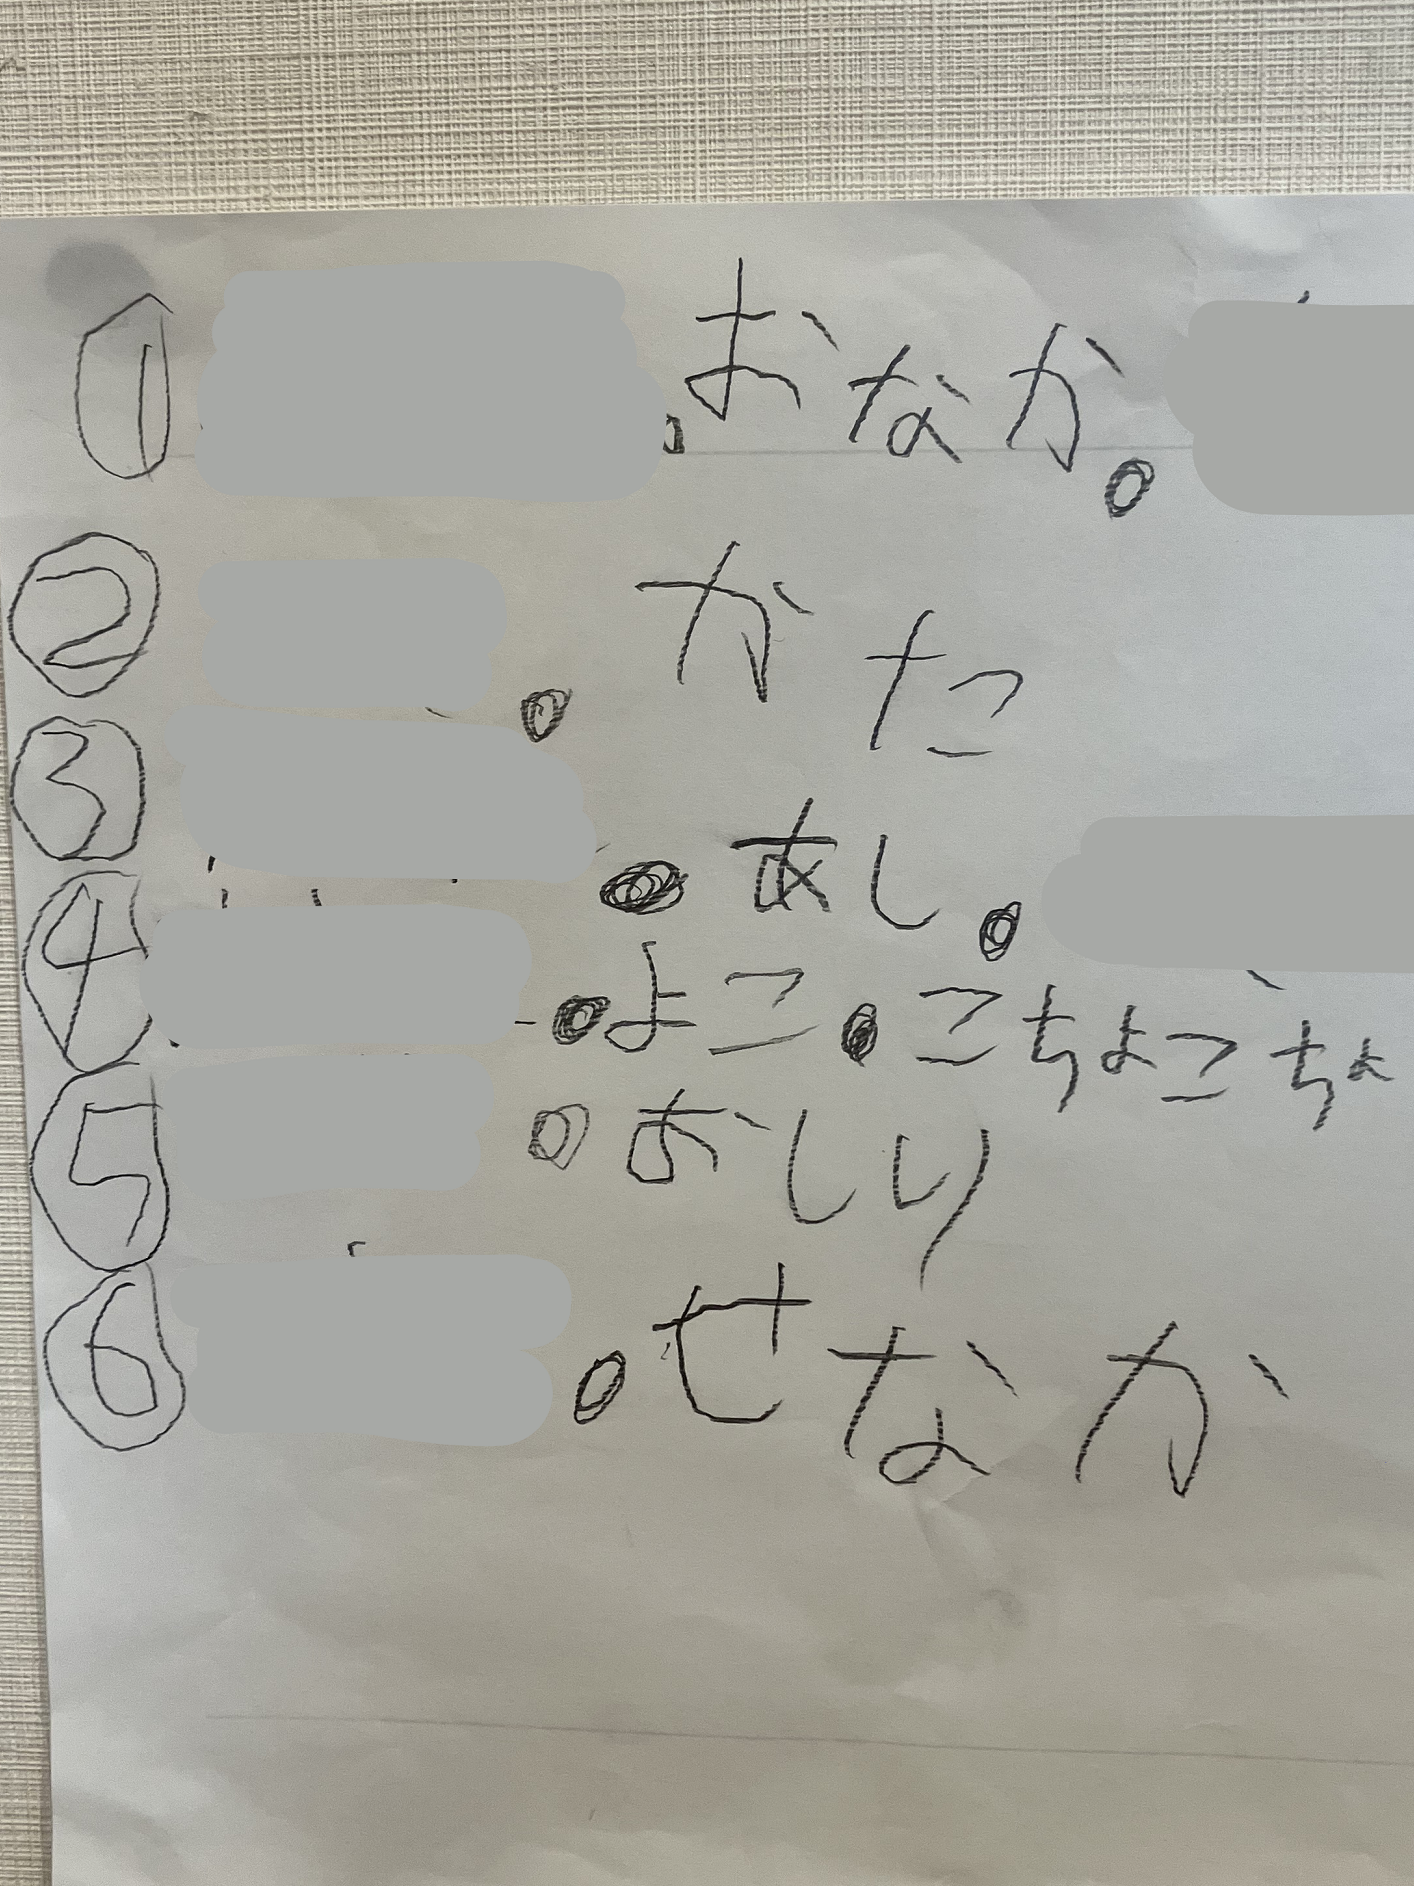 ① ・おなか。
② 。かた
③ ・あし。
④ ・よこ・こちょこちょ
⑤ 。おしり
⑥ 。せなか